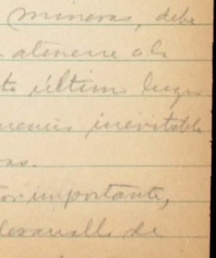 mineras, debe
atenerse a la
último lugar
inevitable
importante,
desarrollo de